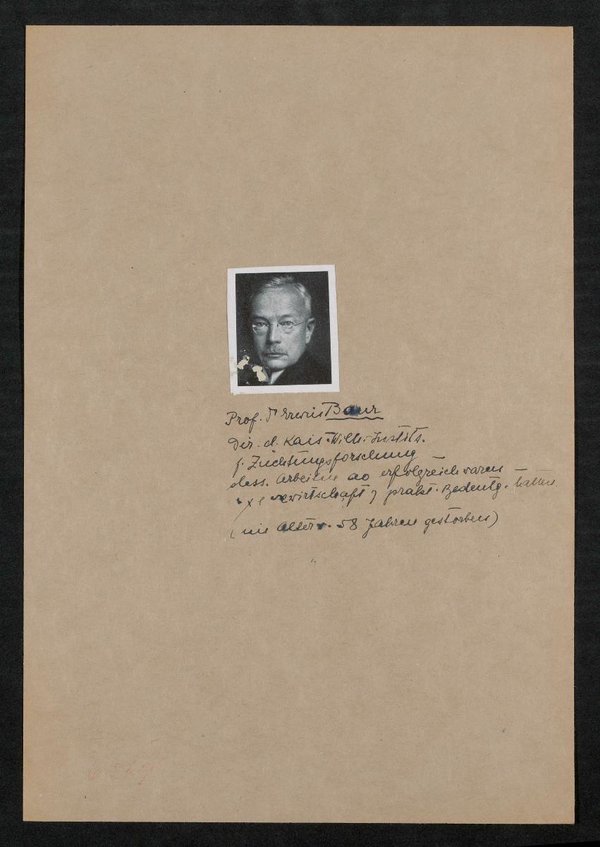 Prof. Dr Erwin Baur
Dir. d. Kais. Wilh. Instits.
f. Züchtungsforschung
dess. Arbeiten ao erfolgreich waren
wirtschaft prakt. Bedeutg. hatten
(im Alter v. 58 Jahren gestorben)